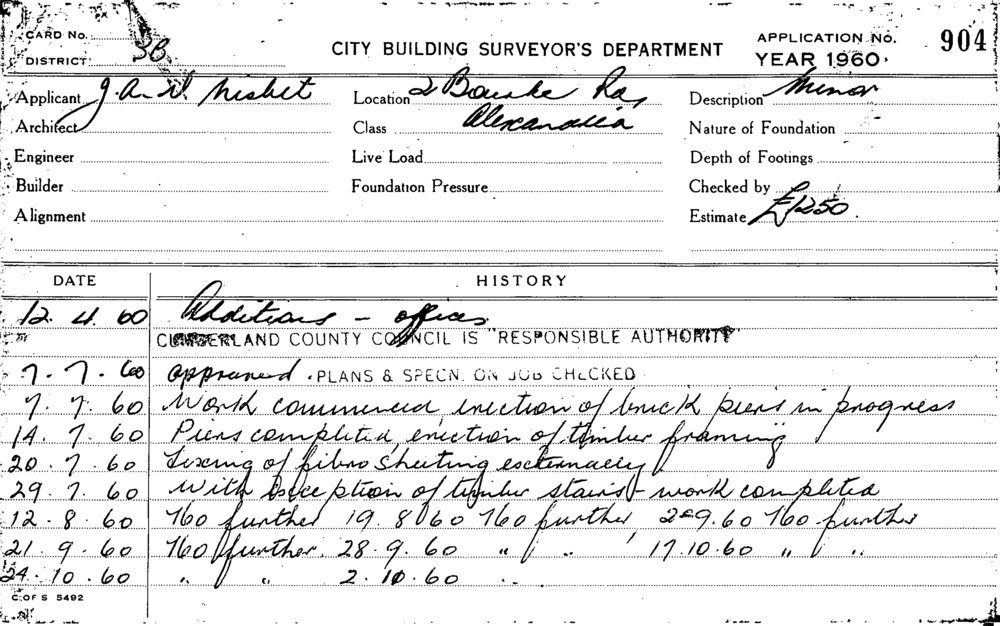 CARD No. APPLICATION No. 904
DISTRICT 3B CITY BUILDING SURVEYOR'S DEPARTMENT YEAR 1960.
Applicant J. A. D. Nisbet Location 2 Bourke Rd, Description Minor
Architect Class Alexandria Nature of Foundation
Engineer Live Load Depth of Footings
Builder Foundation Pressure Checked by
Alignment Estimate £1250.
DATE HISTORY
12. 4. 60 Additions - offices
CUMBERLAND COUNTY COUNCIL IS "RESPONSIBLE AUTHORITY"
7. 7. 60 approved. PLANS & SPECN. ON JOB CHECKED
7. 7. 60 Work commenced, erection of brick piers in progress
14. 7. 60 Piers completed, erection of timber framing
20. 7. 60 Fixing of fibro sheeting externally
29. 7. 60 With exception of timber stairs - work completed
12. 8. 60 No further 19. 8. 60 No further 2-9.60 No further
21. 9. 60 No further. 28. 9. 60 " " 17.10.60 " "
24. 10. 60 " " 2. 10. 60 " "
C. OF S 5492